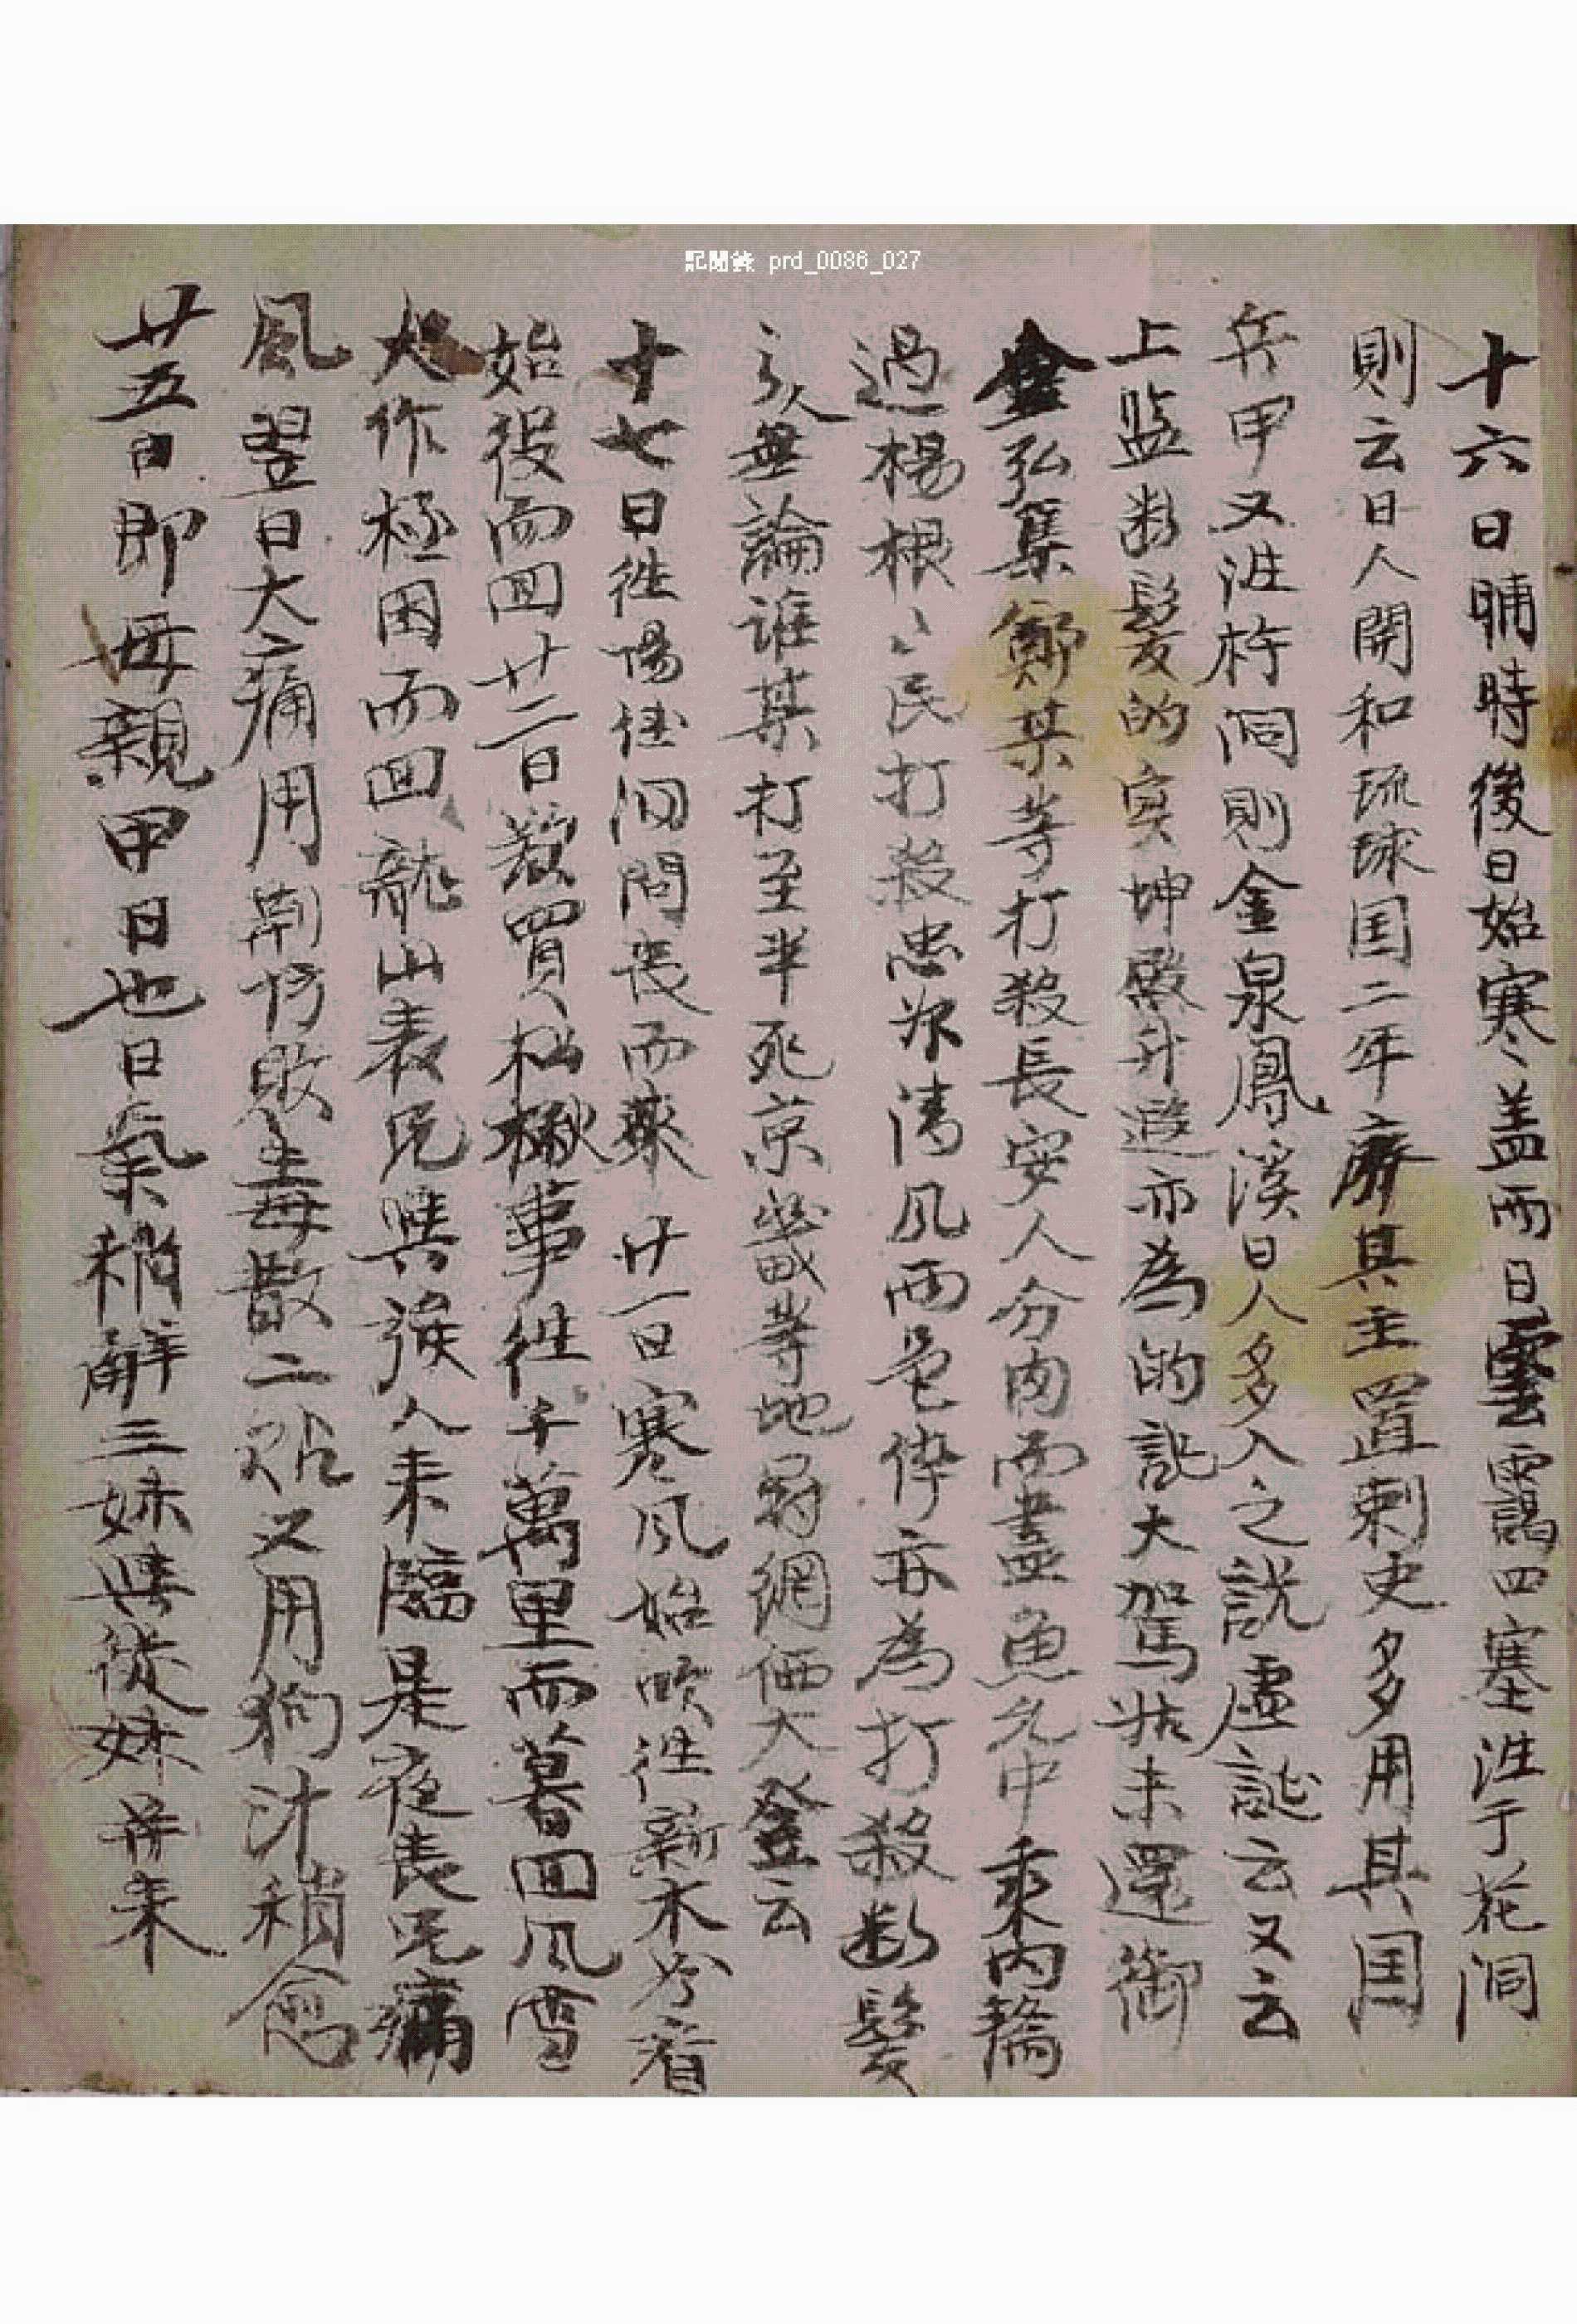 記聞錄 prd_0086_027
十六日晡時後日始寒〻盖雨日雲靄四塞徃于花洞
則云日人開和琉球国二年廢其主置刺史多用其国
兵甲又徃杵洞則金泉鳳溪日人多入之說虛誕云又云
上監断髮的实坤殿弁避亦為的訛大駕姑未還御
金弘集鄭某等打殺長安人分肉而盡魚允中乘內轎
過楊根〻民打殺忠州清風两邑倅亦為打殺断髮
之人無論誰某打至半死京畿等地弱網価大登云
十七日徃陽佳洞問喪而藥 廿一日寒風始暎徃新木谷看
始役而回廿二日裁買松楸事徃千萬里而暮回風雪
大作極困而回龍山表兄與張人来臨是夜表兄痛
風翌日大痛用荊防敗毒散二貼又用狗汁稍愈
廿五日即母親甲日也日氣稍解三妹與從妹并来